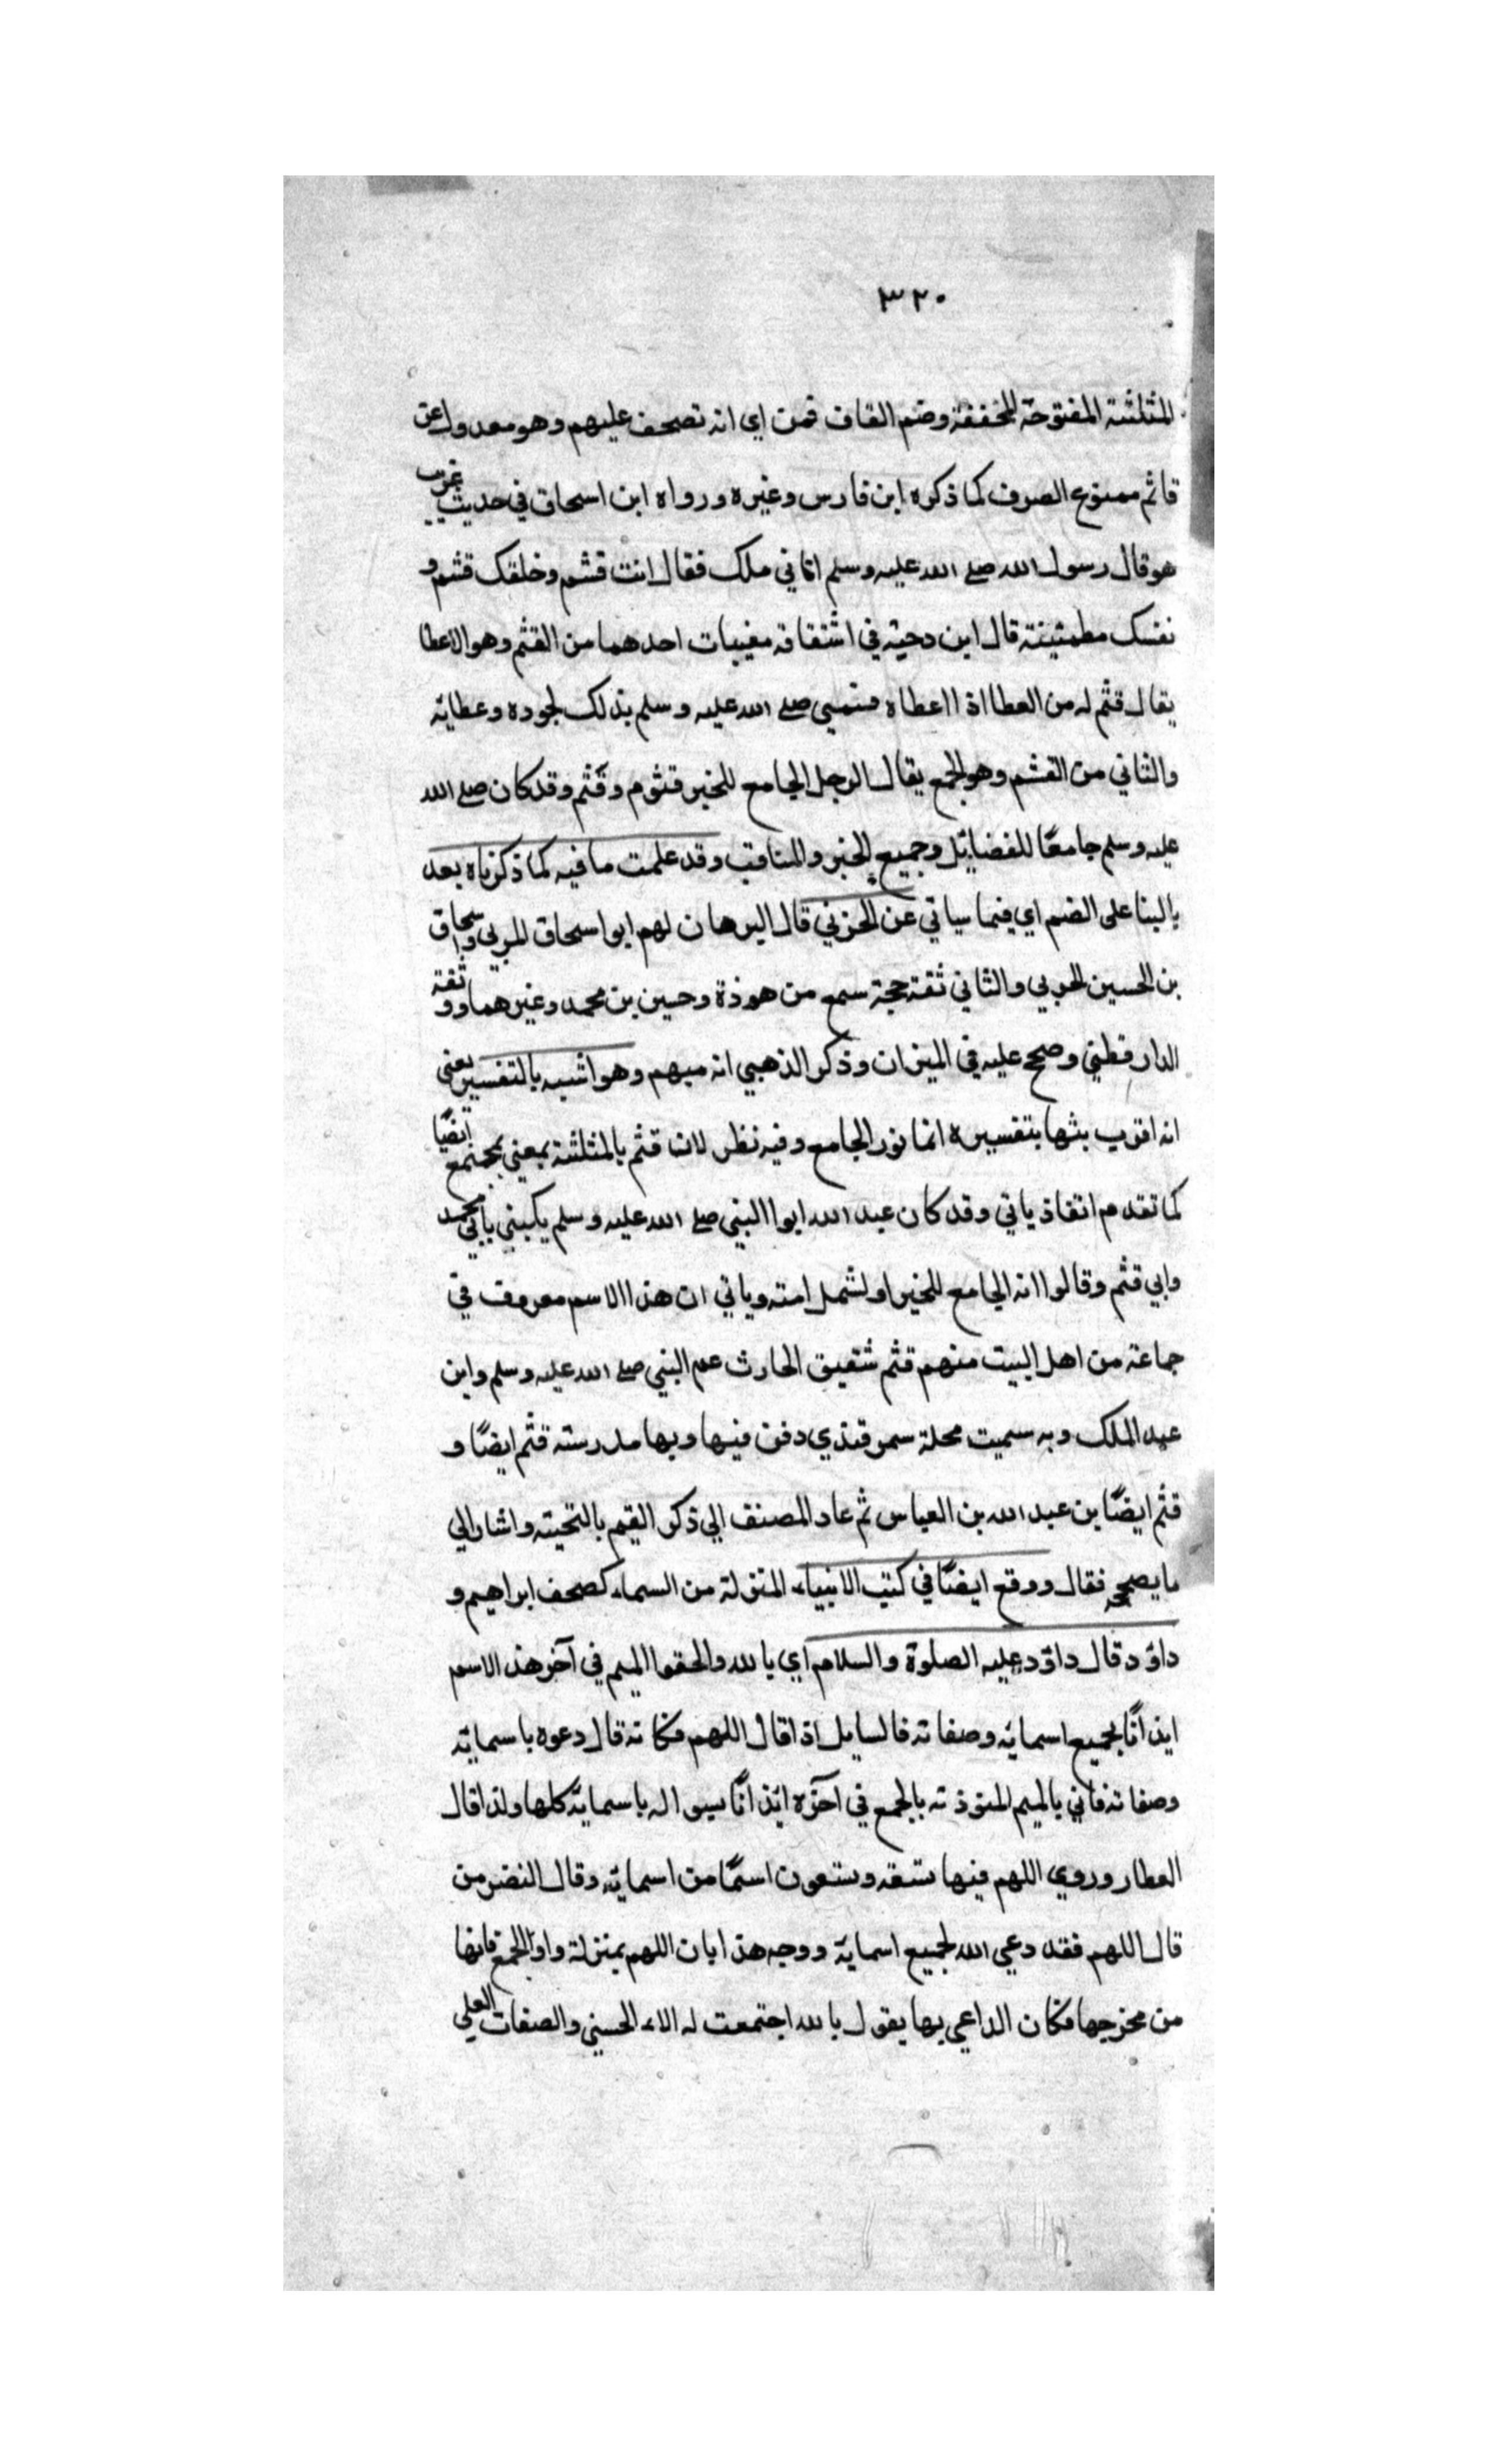 ٣٢٠
المثلثة المفتوحة المخففة وضم القاف قمن اي انه تصحف عليهم وهو معدول عن
قاثم ممنوع الصرف كما ذكره ابن فارس وغيره ورواه ابن اسحاق في حديث غريب
هو قال رسول الله صلے الله عليه وسلم اتاني ملك فقال انت قثم وخلقك قثم و
نفسك مطمئينة قال ابن دحية في اشتقاقه مغيبات احدهما من القثم وهو الاعطا
يقال قثم له من العطا اذا اعطاه فسمي صلے الله عليه وسلم بذلك لجوده وعطاية
والثاني من القثم وهو الجمع يقال الرجل الجامع للخير قثوم وقثم وقد كان صلے الله
عليه وسلم جامعًا للفضايل وجميع الخير والمناقب وقد علمت ما فيه كما ذكرناه بعد
بالبنا على الضم اي فيما سياتي عن الحزني قال البرهان لهم ابو اسحاق المربي واسحاق
بن الحسين الحربي والثاني ثقة حجة سمع من هوذة وحسين بن محمد وغيرهما ووثقة
الدارقطني وصح عليه في الميزان وذكر الذهبي انه مبهم وهو اشبه بالتفسير يعني
انه اقرب بثها بتفسيره انما نور الجامع وفيه نظر لان قثم بالمثلثة بمعني مجتمع ايضًا
كما تقدم اتفاذ ياتي وقد كان عبد الله ابوا النبي صلے الله عليه وسلم يكني بابي محمد
وابي قثم وقالوا انه الجامع للخير او لشمل امته وياتي ان هذا الاسم معروف في
جماعة من اهل البيت منهم قثم شقيق الحارث عم النبي صلے الله عليه وسلم وابن
عبد الملك وبه سميت محلة سمرقندي دفن فيها وبها مدرسته قثم ايضًا و
قثم ايضًا بن عبد الله بن العباس ثم عاد المصنف الي ذكر القيم بالتحيته واشار الي
ما يصححه فقال ووقع ايضًا في كتب الانبياء المنزلة من السماء كصحف ابراهيم و
داؤد قال داؤد عليه الصلوة والسلام اي يا لله والحقوا الميم في آخر هذ الاسم
ايذانًا بجميع اسمائه وصفاته فالسايل اذا قال اللهم فكانه قال دعوه باسمائه
وصفاته فاني بالميم الموذنه بالجمع في آخره ائذانًا بسواله باسمائة كلها ولذا قال
العطار وروي اللهم فيها تسعه وتسعون اسمًا من اسمائه وقال النضر من
قال اللهم فقد دعي الله لجميع اسماية ووجه هذا بان اللهم بمنزلة واو الجمع فانها
من مخرجها فكان الداعي بها يقول يا لله اجتمعت له الاء الحسني والصفات العلي